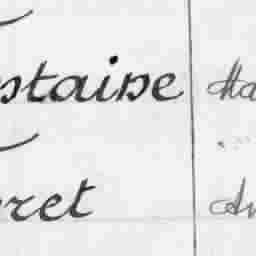 ntaine Ma
ret An